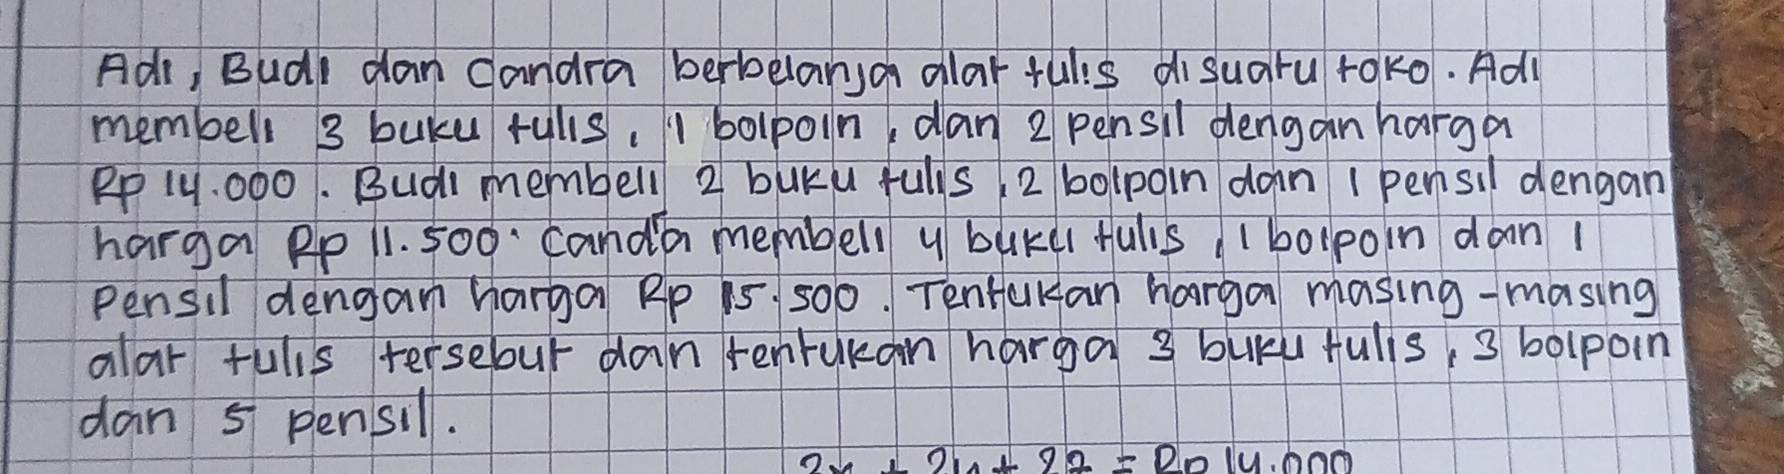 Adi, Budi dan Candra berbelanja alat tulis disuatu toko. Adi
membeli 3 buku tulis, 1 bolpoin, dan 2 pensil dengan harga
Rp 14.000. Budi membeli 2 buku tulis, 2 bolpoin dan 1 pensil dengan
harga Rp 11.500. Candra membeli 4 buku tulis, 1 bolpoin dan 1
pensil dengan harga Rp 15.500. Tentukan harga masing-masing
alat tulis tersebut dan tentukan harga 3 buku tulis, 3 bolpoin
dan 5 pensil.
= Rp 14.000